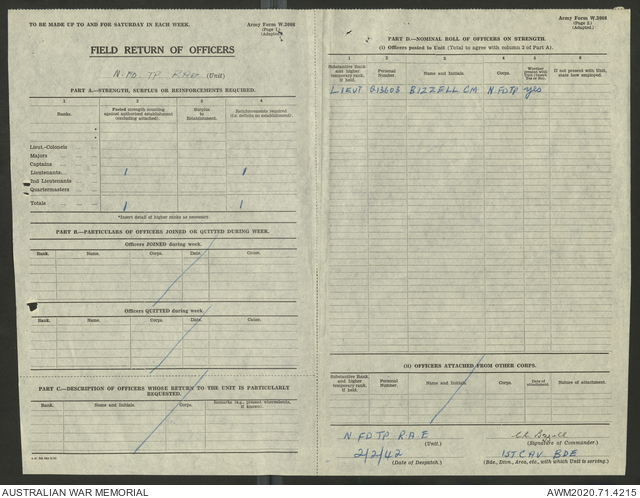 TO BE MADE UP TO AND FOR SATURDAY IN EACH WEEK.
Army Form W.3008
(Page 1.)
(Adapted.)
FIELD RETURN OF OFFICERS
N. FD TP RAE (Unit)
PART A.—STRENGTH, SURPLUS OR REINFORCEMENTS REQUIRED.
1 2 3 4
Ranks. Posted strength counting against authorized establishment (excluding attached). Surplus to Establishment. Reinforcements required (i.e. deficits on establishment).
Lieut.-Colonels
Majors
Captains
Lieutenants 1 1
2nd Lieutenants
Quartermasters
Totals 1 1
*Insert detail of higher ranks as necessary
PART B.—PARTICULARS OF OFFICERS JOINED OR QUITTED DURING WEEK.
Officers JOINED during week.
Rank. Name. Corps. Date. Cause.
Officers QUITTED during week
Rank. Name. Corps. Date. Cause.
PART C.—DESCRIPTION OF OFFICERS WHOSE RETURN TO THE UNIT IS PARTICULARLY REQUESTED.
Rank. Name and Initials. Corps. Remarks (e.g., present whereabouts, if known).
Army Form W.3008
(Page 2.)
(Adapted.)
PART D.—NOMINAL ROLL OF OFFICERS ON STRENGTH.
(i) Officers posted to Unit (Total to agree with column 2 of Part A).
1 2 3 4 5 6
Substantive Rank and higher temporary rank, if held. Personal Number. Name and Initials. Corps. Whether present with Unit (Insert Yes or No). If not present with Unit, state how employed.
LIEUT G13603 BIZZELL CM N FD TP yes
(ii) OFFICERS ATTACHED FROM OTHER CORPS.
Substantive Rank and higher temporary rank, if held. Personal Number. Name and Initials. Corps. Date of attachment. Nature of attachment.
N FD TP R.A.E
(Unit.)
(Signature of Commander.)
2/2/42
(Date of Despatch.)
1ST CAV BDE
(Bde., Divn., Area, etc., with which Unit is serving.)
AUSTRALIAN WAR MEMORIAL
AWM2020.71.4215